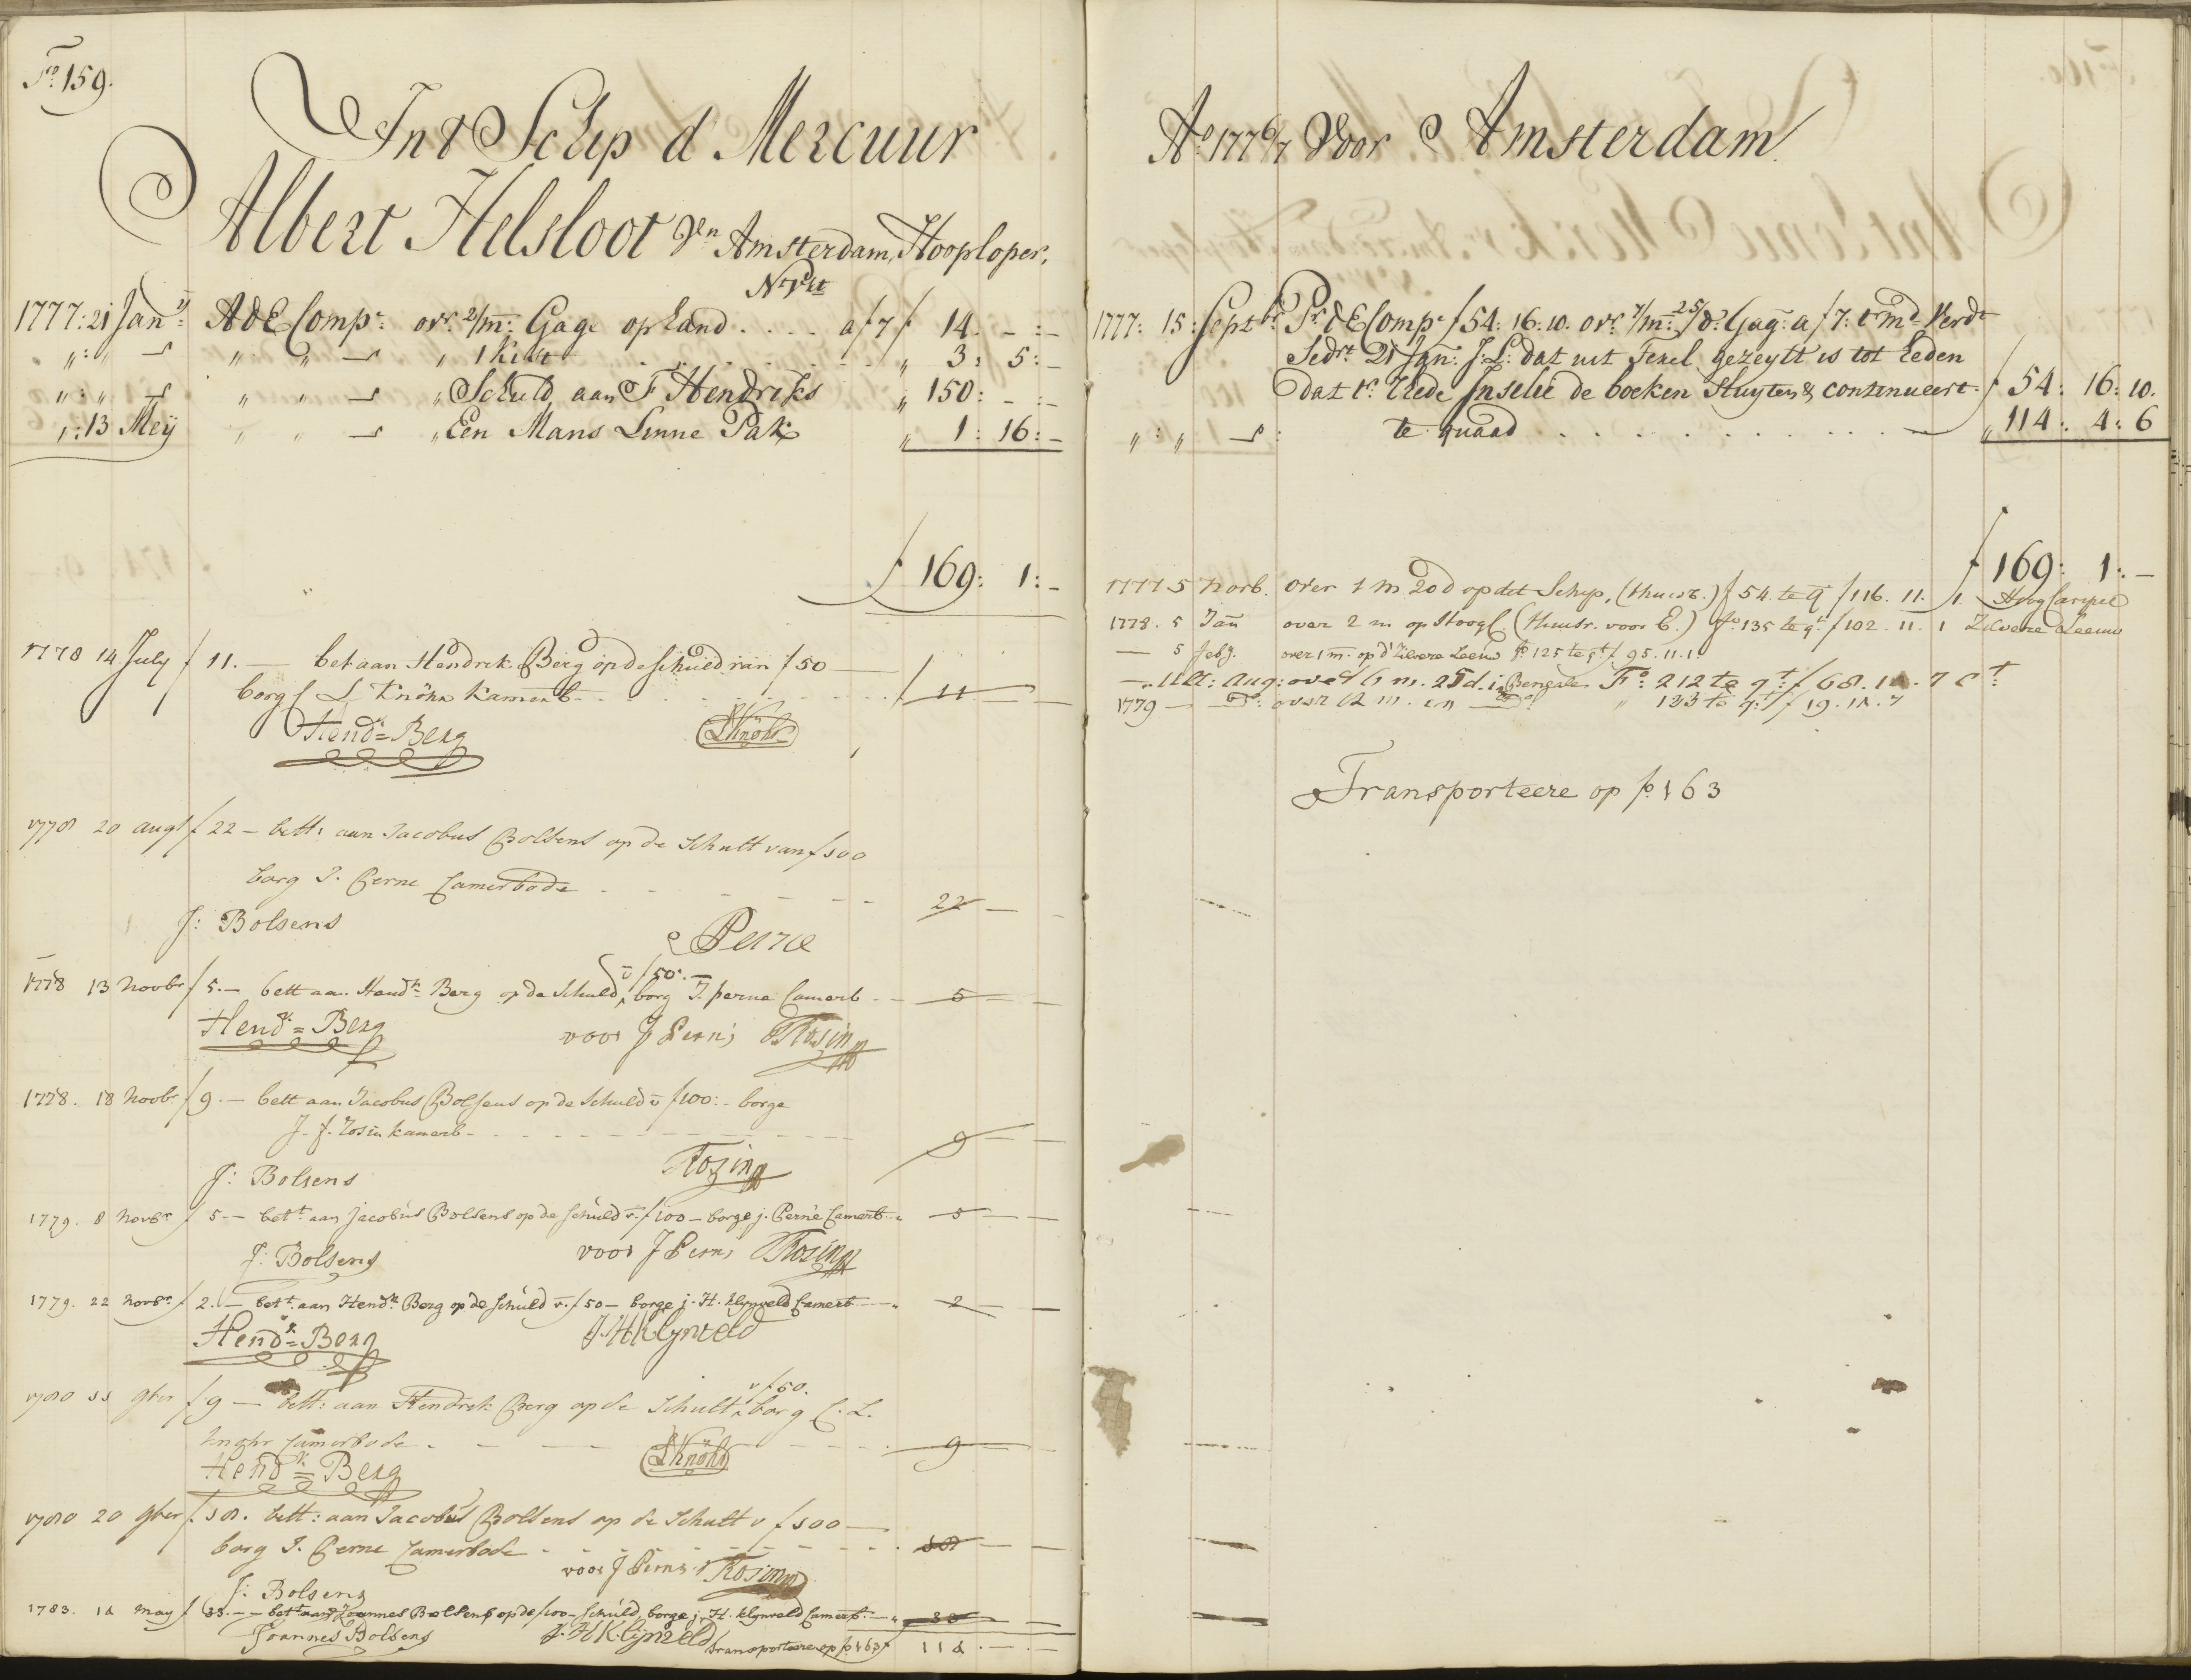 Fo. 159.
Int Schip d' Mercuur
Albert Helsloot Vn Amsterdam, Hooploper,
1777: 21 Janij A d E Compe. ovr. 2/m: Gage op hand .... a f 7 f 14. - : -
„ : „ „ „ „ 1 Kist „ 3: 5: -
„ : „ „ „ „ Schuld aan F Hendriks „ 150: - : -
„ : 13 Meij „ „ „ Een Mans Linne Pak „ 1: 16: -
f 169: 1: -
1778 14 July f 11. - bet aan Hendrik Berg op de schuld van f 50
borg L Knöhr kamerb. f 11
Hendk = Berg LKnöhr
1778 20 augt f 22 - bett: aan Jacobus Bolsens op de Schult van f 100
borg I. Perne Camerbode 22 -
J: Bolsens Perne
v f 50. -
1778 13 Novbr f 5. - bett aa. Hendk Berg op de Schuld, borg I. perne Camerb - 5 -
Hendk = Berg voor J Perne Rosing
1778. 18 Novbr f 9. - bett aan Jacobus Bolsens op de Schuld v f 100: - borge
J. f. Rosin kamerb - 9 -
J: Bolsens Rosing
1779. 8 Novbr f 5. - bett. aan Jacobus Bolsens op de schuld v. f 100 - borge j. Perné Camerb. „ 5 -
J: Bolsens voor J Perne Rosing
1779. 22 Novbr. f 2. - bett. aan Hendk Berg op de schuld v. f 50 - borge j. H. klynveld Camerb - „ 2 -
Hendk = Berg J. H Klynveld
v f 50.
1780 11 9ber f 9 - bett: aan Hendrik Berg op de Schult, borg C. L.
Knohr Camerbode 9
Hendk = Berg LKnöhr
1780 20 9ber f 18. bett: aan Jacobus Bolsens op de Schult v f 100 -
borg I. Perne Camerbode 18 -
voor J Perne Rosing
J: Bolsens
1783. 12 may f 33. - - bett aan Joannes Bolsens op de f 100 - Schuld, borge j. H. klynveld Camerb. - „ 33 -
Joannes Bolsens J. H Klijnveld transporteere op fo 163 f 114. - . -
Ao. 1776/7 Voor Amsterdam
1777: 15: Septbr. Pr d E Compe f 54: 16: 10. ovr. 7/m: 25/d: Gag: a f 7: t md Verdt
Sedrt 21 Jan: J: L: dat uit Texel gezeylt is tot heden
dat tr. Rede de boeken Sluyten & continueert f 54: 16: 10.
„ : „ te quaad „ 114: 4: 6
f 169: 1: -
1777 5 Norb. over 1 m 20 d op det Schip, f 54 te q f 116. 11. 1. Hoog Carspel
1778. 5 Jan over 2 m op Hoogc. fo 135 te qt f 102. 11. 1 Zilvere Leeuw
- 5 feb. over 1 m. op d' Zilvere Leeuw fo 125 te qt f 95. 11. 1.
- Ult: Aug: over 6 m. 25 d. in Bengale Fo: 212 te qt: f 68. 14. 7 Ct
1779 - Do: over 12 m. en Do: „ 133 te qt: f 19. 14. 7
Transporteere op fo. 163